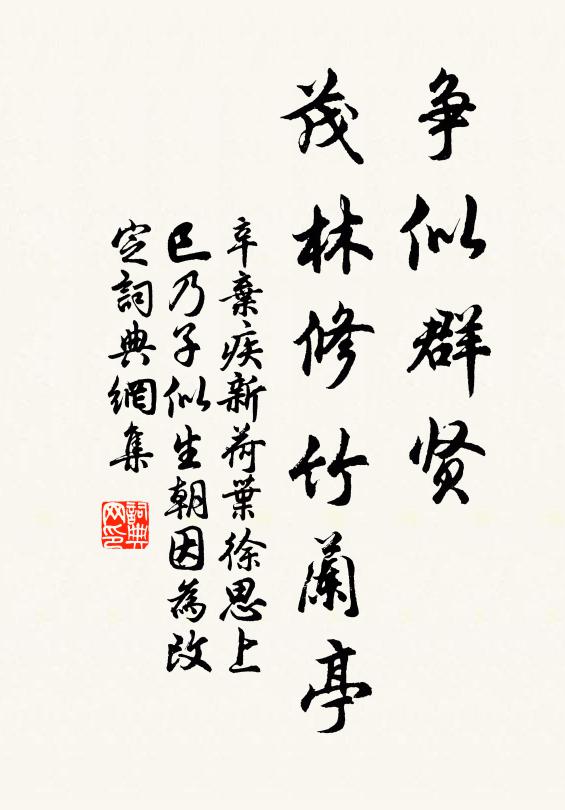 争似群贤
茂林修竹蘭亭
辛棄疾新荷葉徐思上
巳乃子似生朝因為改
定詞典網集
詞典网印